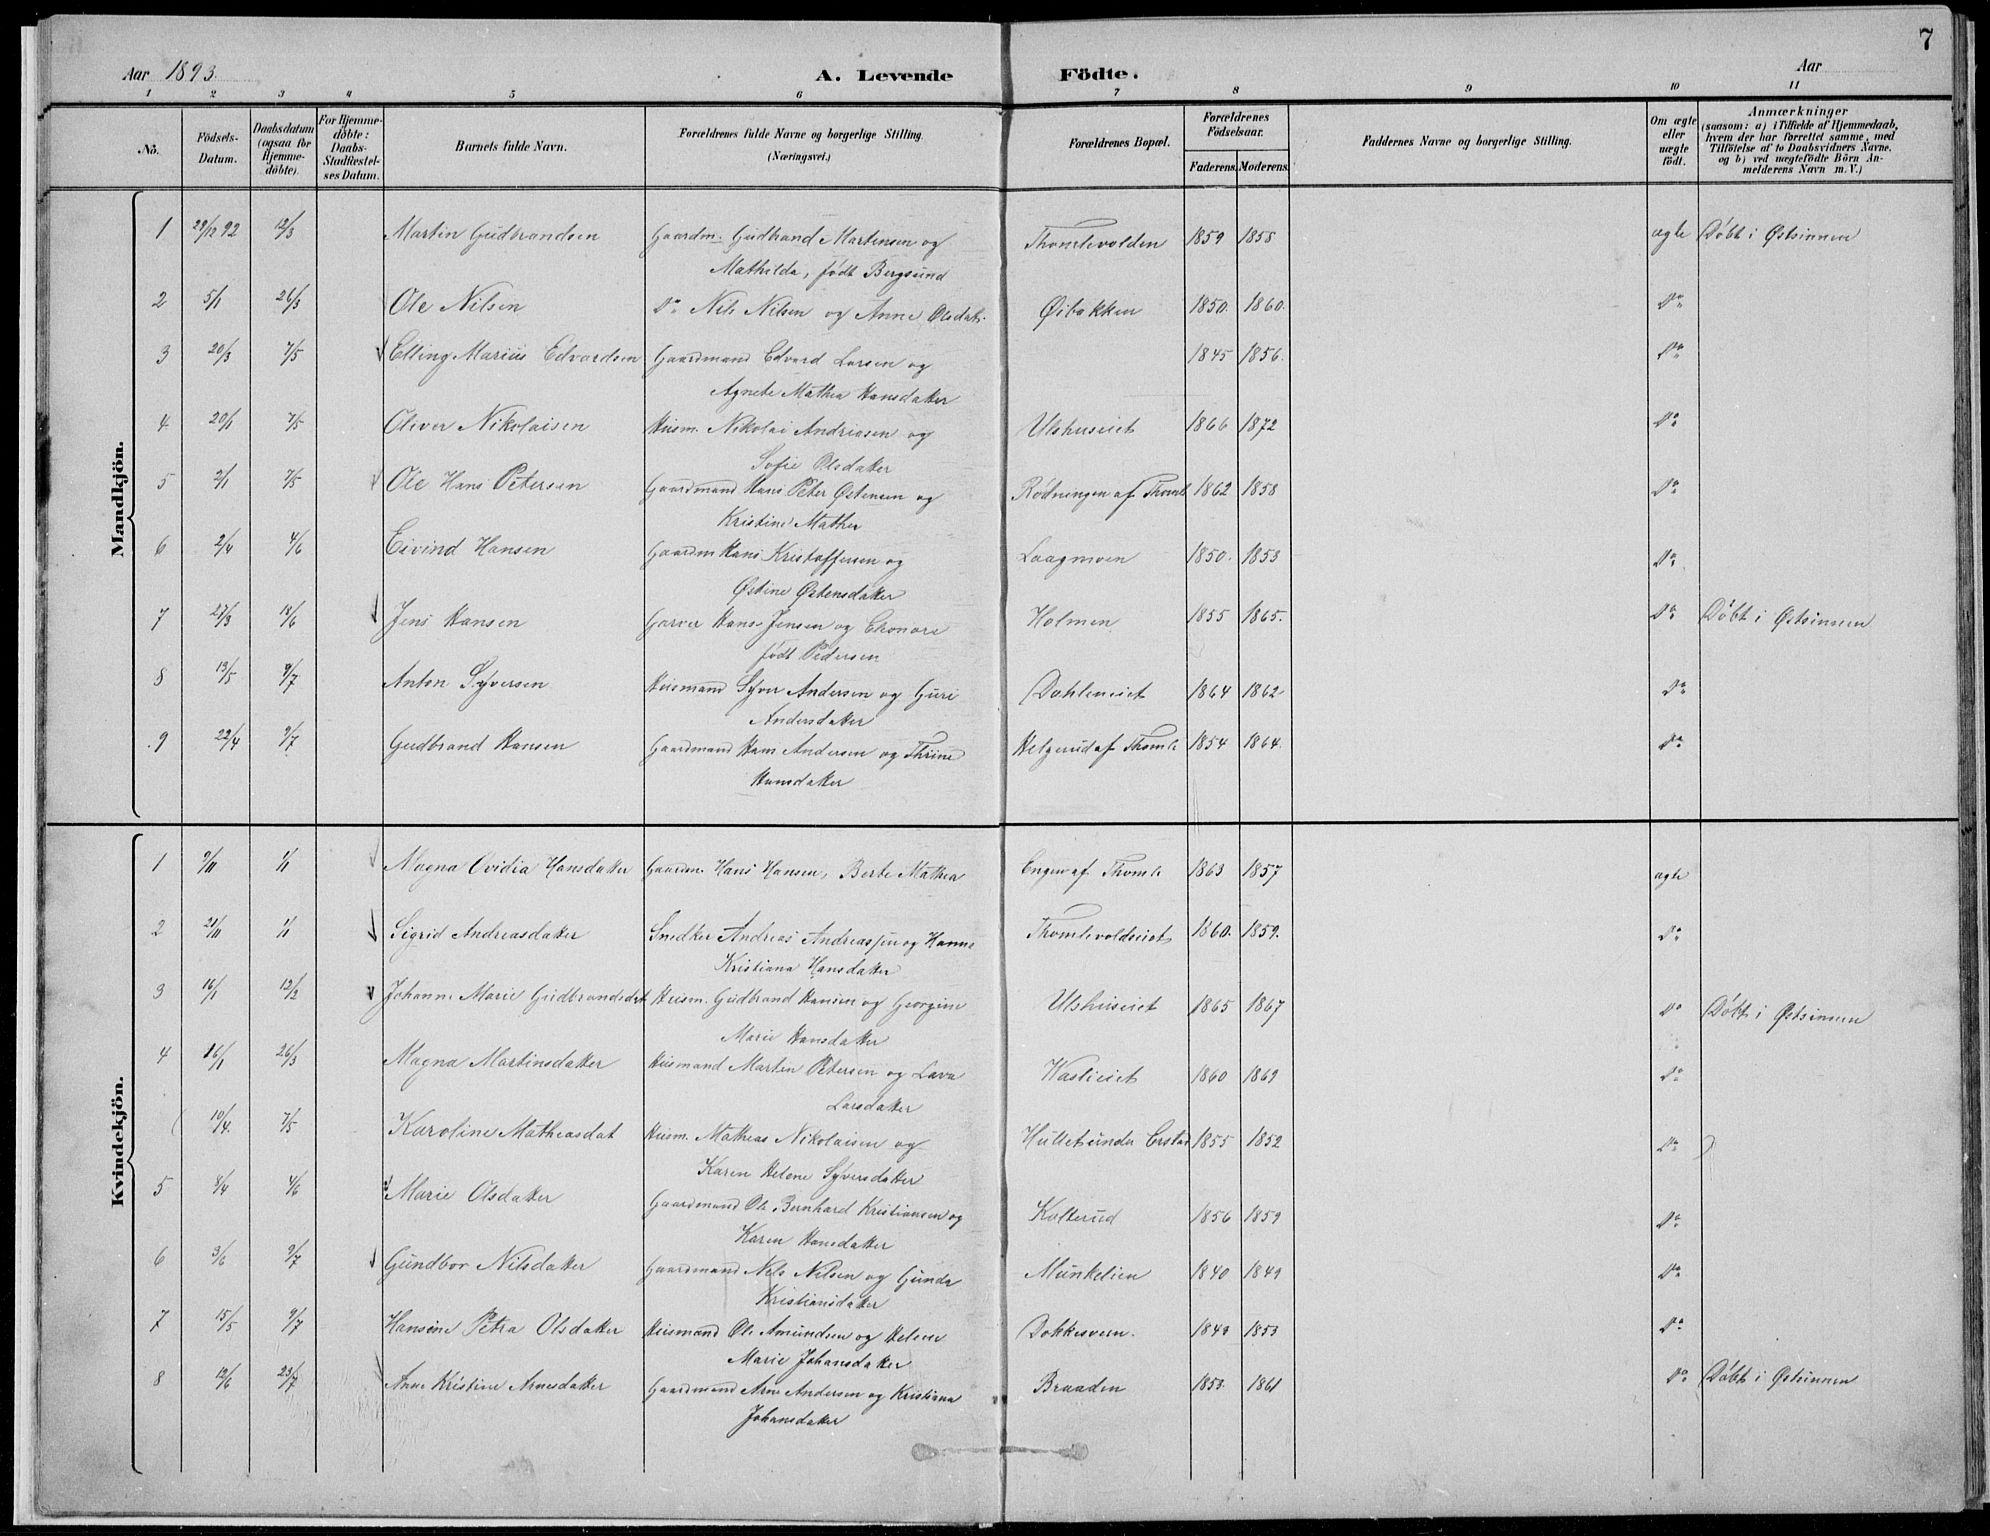 7
Aar 1893. A. Levende Födte. Aar
1 2 3 4 5 6 7 8 9 10 11
No. Födsels-Datum. Daabsdatum (ogsaa för Hjemme-döbte). For Hjemme-döbte: Daabs-Stadfæstel-ses Datum. Barnets fulde Navn. Forældrenes fulde Navne og borgerlige Stilling. (Næringsvei.) Forældrenes Bopæl. Forældrenes Födselsaar. Faderens. Moderens. Faddernes Navne og borgerlige Stilling. Om ægte eller uægte födt. Anmærkninger (saasom: a) i Tilfælde af Hjemmedaab, hvem der har forrettet samme, med Tilföielse af to Daabsvidners Navne, og b) ved uægtefödte Börn An-melderens Navn m. V.)
Mandkjön.
1 29/12 92 12/3 Martin Gudbrandsen Gaardm. Gudbrand Martensen og Thomlevolden 1859 1858 ægte Døbt i Østsinnen
Mathilda, født Bergsund
2 5/1 26/3 Ole Nilsen Do Nils Nilsen og Anne Olsdatr. Øibakken 1850. 1860. Do
3 20/3 7/5 Elling Marius Edvardsen Gaardmand Edvard Larsen og 1845 1856. Do
Agnete Mathea Hansdatter
4 20/1 7/5 Oliver Nikolaisen Husm. Nikolai Andreasen og Ulshuseiet 1866 1872 Do
Sofie Olsdatter
5 2/1 7/5 Ole Hans Petersen Gaardmand Hans Peter Østensen og Rødningen af Thomle 1862 1858 Do
Kristine Mathea
6 2/4 4/6 Eivind Hansen Gaardm Hans Kristoffersen og Laagmoen 1850. 1853 Do
Østine Østensdatter
7 27/3 18/6 Jens Hansen Garver Hans Jensen og Elonore Holmen 1855 1865. Do Døbt i Østsinnen
født Pedersen
8 13/5 9/7 Anton Syversen Husmand Syver Andersen og Guri Dahleneiet 1864 1862 Do
Andersdatter
9 22/4 9/7 Gudbrand Hansen Gaardmand Hans Andersen og Thrine Helgerud af Thomle 1854 1864. Do
Hansdatter
Kvindekjön.
1 9/11 1/1 Magna Ovidia Hansdatter Gaardm. Hans Hansen, Berte Mathea Engen af Thomle 1863 1857 ægte
2 21/11 1/1 Sigrid Andreasdatter Snedker Andreas Andreassen og Hanne Thomlevoldseiet 1860. 1859. Do
Kristiana Hansdatter
3 16/1 12/2 Johanne Marie Gudbrandsdat Husm. Gudbrand Hansen og Georgine Ulshuseiet 1865 1867 Do Døbt i Østsinnen
Marie Hansdatter
4 16/1 26/3 Magna Martinsdatter Husmand Martin Petersen og Lava Haslieiet 1860 1869 Do
Larsdatter
10/4. 7/5 Karoline Matheasdat Husm. Matheas Nikolaisen og Hullet under Erstad 1855 1852 Do
Karen Helene Syversdatter
5 8/4 4/6 Marie Olsdatter Gaardmand Ole Bernhard Kristiansen og Kolterud 1856 1859 Do
Karen Hansdatter
6 3/6 9/7 Gundbor Nilsdatter Gaardmand Nils Nilsen og Gunda Munkelien 1840 1849 Do
Kristiansdatter
7 15/5 9/7 Hansine Petra Olsdatter Husmand Ole Amundsen og Helene Dokkesveen. 1849 1853 Do
Marie Johansdatter
8 12/6 23/7 Anne Kristine Arnesdatter Gaardmand Arne Andersen og Kristiana Braaden 1853. 1861 Do Døbt i Østsinnen
Johansdatter